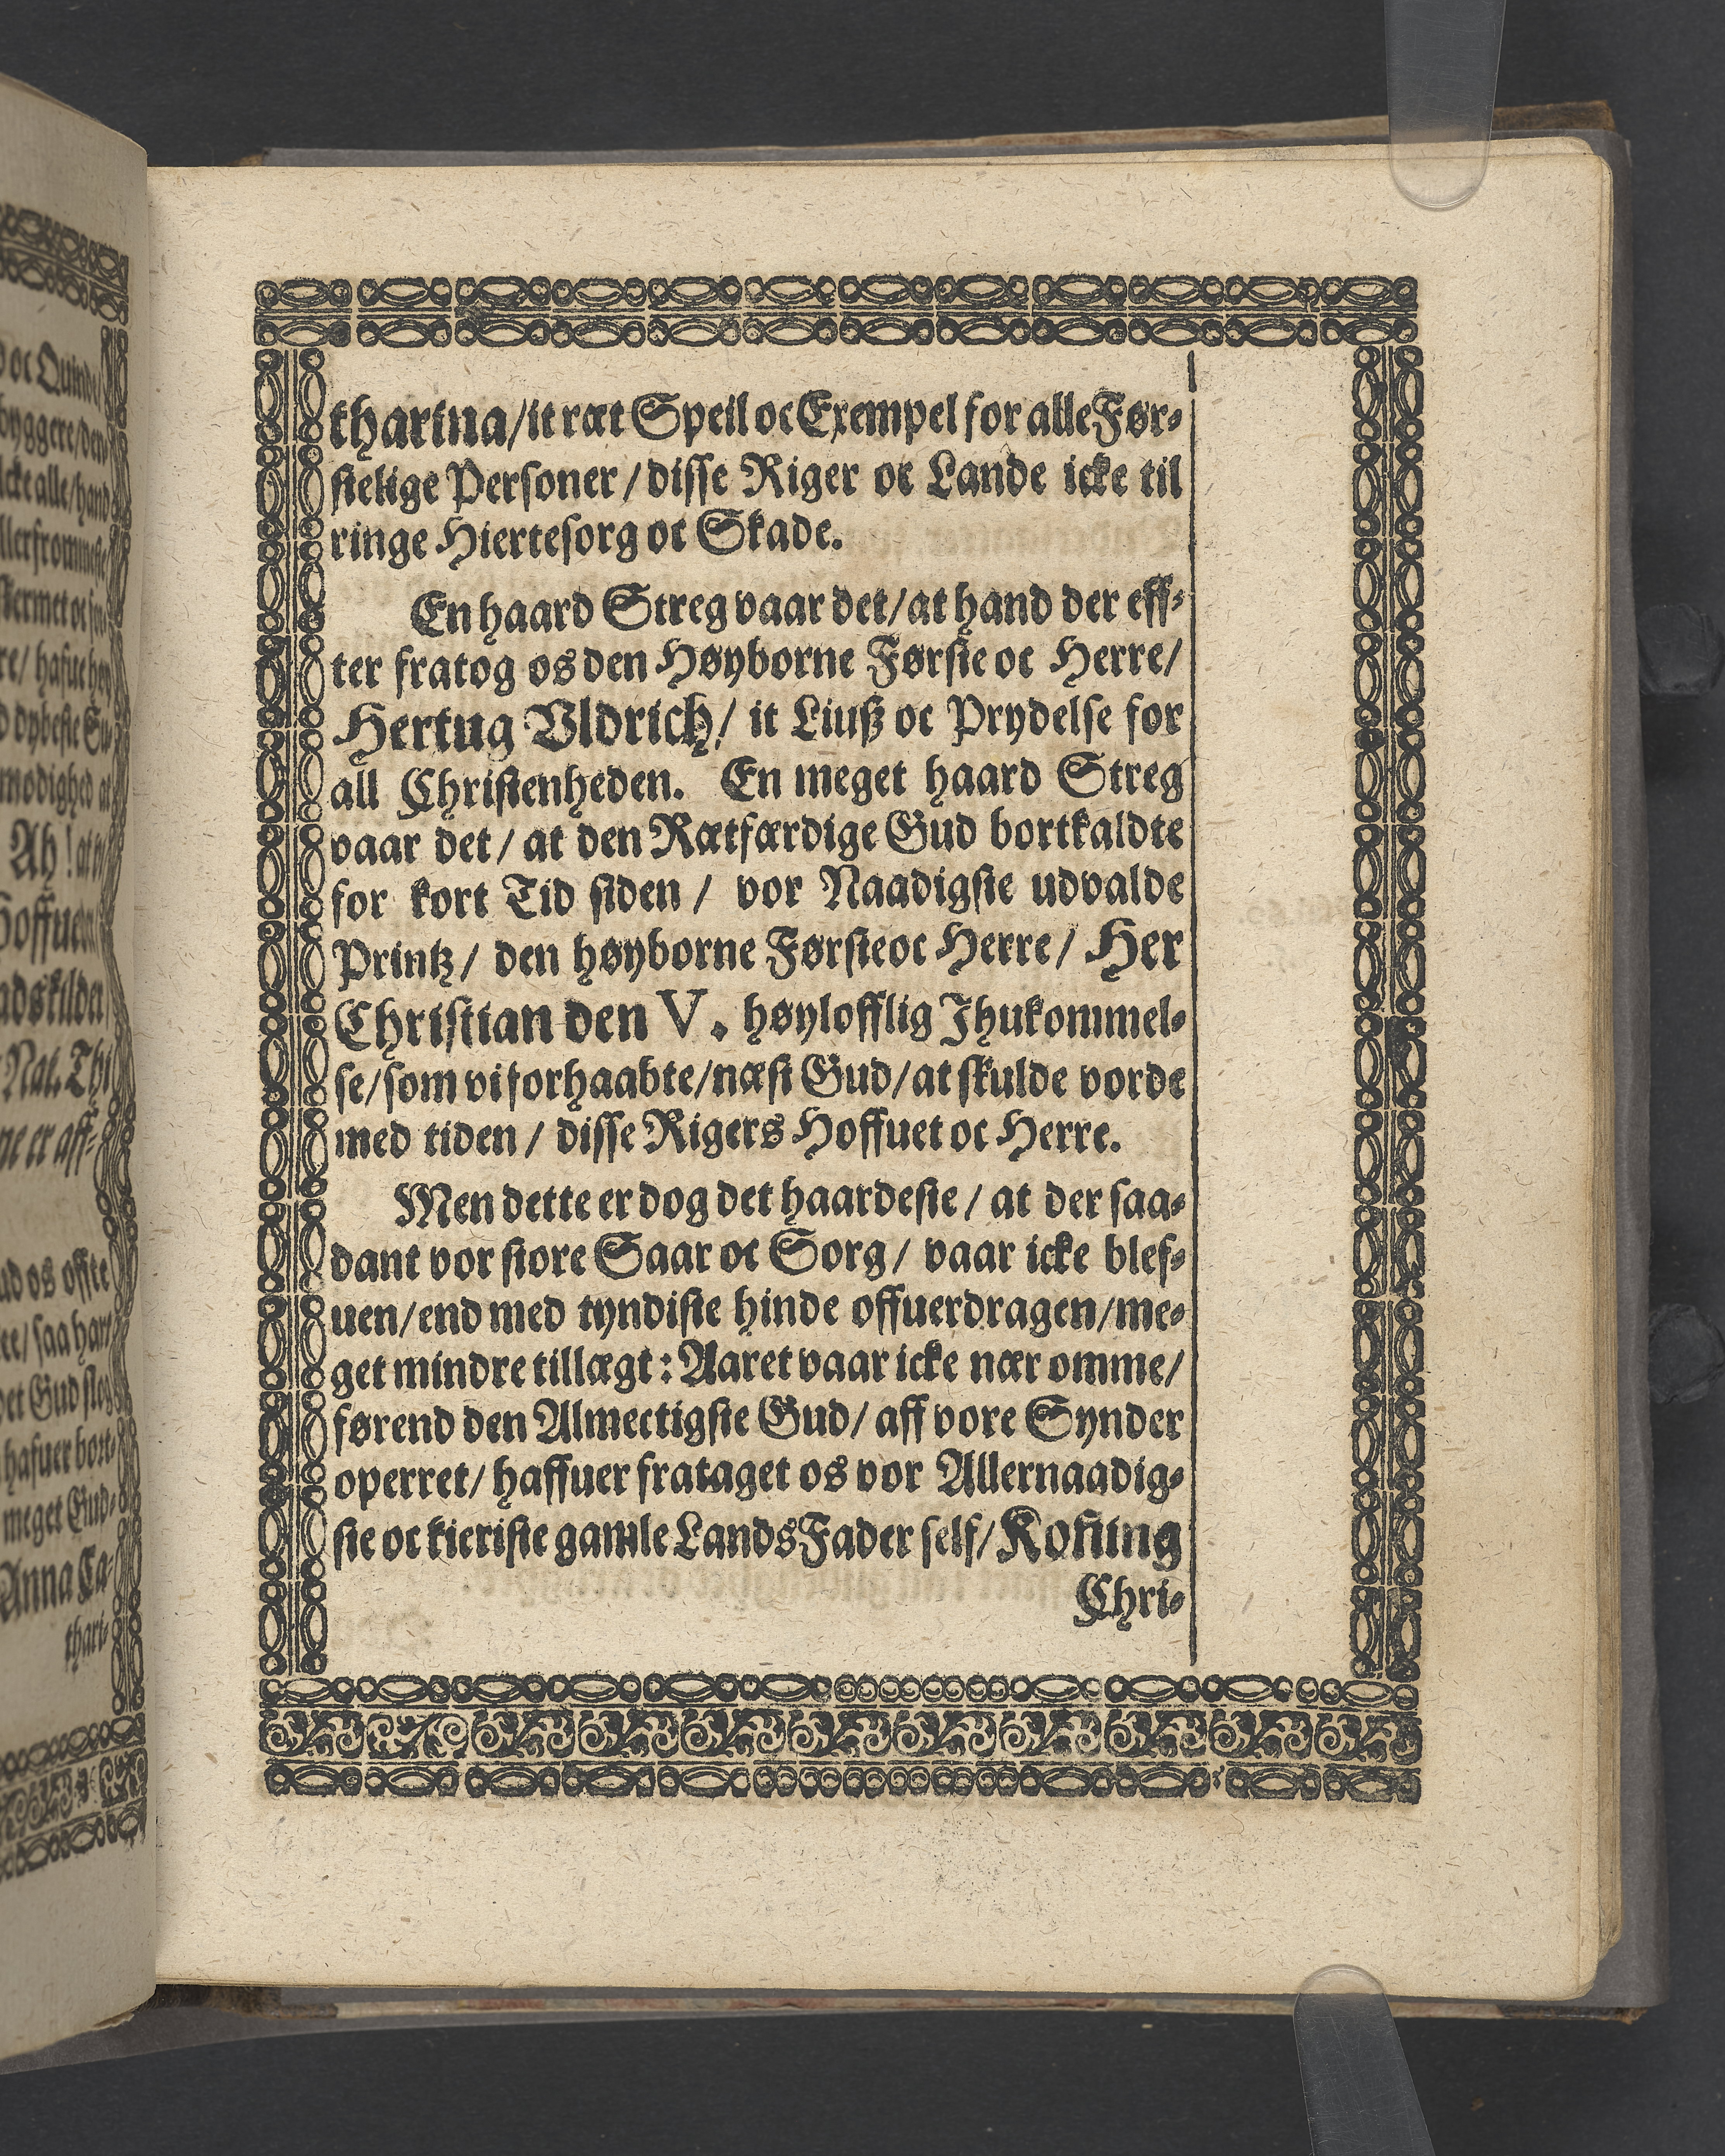 d oc Quinde/
byggere/den
lcke alle/hand
llerfrommeste
re/ hafuer
modighed at
Ah! at
Hoffuet
adskilder
Nat. Thi
ne er aff-
ud os offte
re/ saa har
det Gud slog
hafuer bort-
meget Gud-
Anna Ca-
thari-
tharina/it ræt Speil oc Exempel for alle Før-
stelige Personer/disse Riger oc Lande icke til
ringe Hiertesorg oc Skade.
En haard Streg vaar det/at hand der eff-
ter fratog os den Høyborne Første oc Herre/
Hertug Vldrich/ it Liuß oc Prydelse for
all Christenheden. En meget haard Streg
vaar det/ at den Rætfærdige Gud bortkaldte
for kort Tid siden/ vor Naadigste udvalde
Printz/ den høyborne Førsteoc Herre/ Her
Christian den V. høylofflig Ihukommel-
se/som vi forhaabte/næst Gud/at skulde vorde
med tiden/ disse Rigers Hoffuet oc Herre.
Men dette er dog det haardeste/ at der saa-
dant vor store Saar oc Sorg/ vaar icke blef-
uen/end med tyndiste hinde offuerdragen/me-
get mindre tillægt: Aaret vaar icke nær omme/
førend den Almectigste Gud/ aff vore Synder
operret/ haffuer frataget os vor Allernaadig-
ste oc kieriste gamle Lands Fader self/ Koning
Chri-